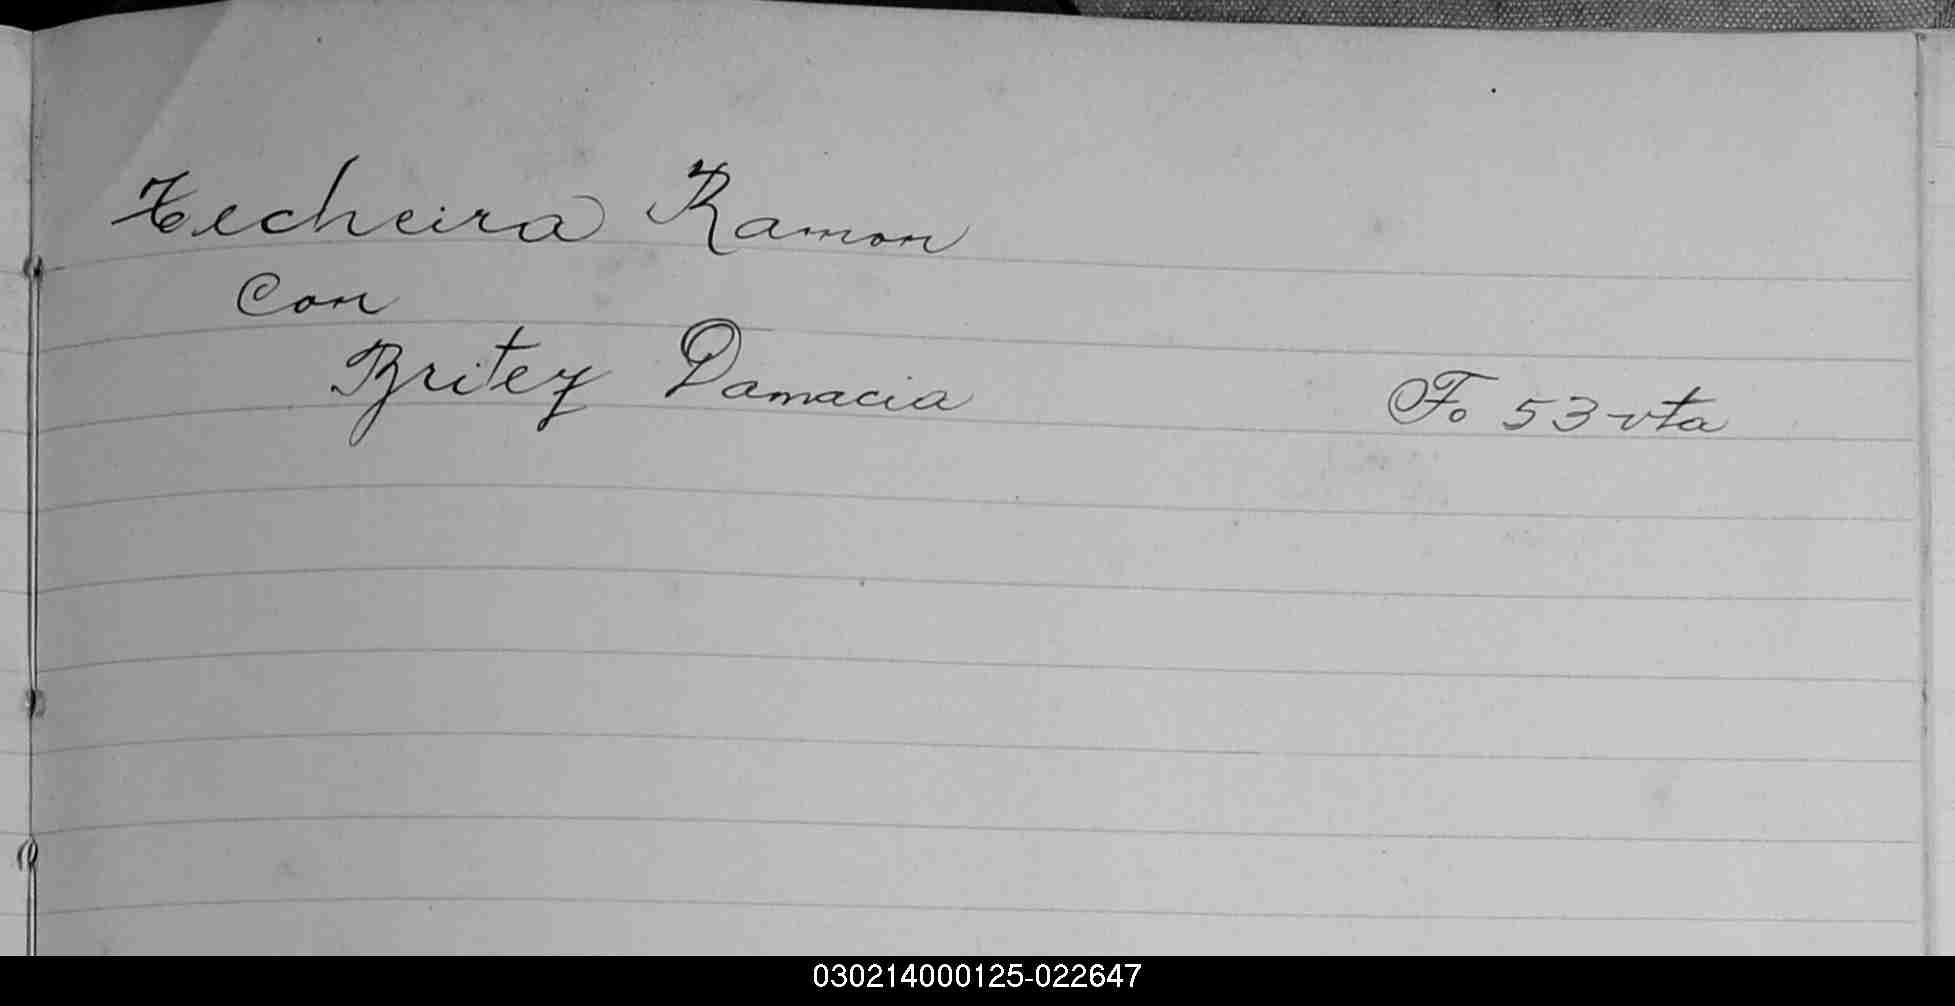 Techeira Ramon
Con
Britez Damacia Fo 53 vta
030214000125-022647